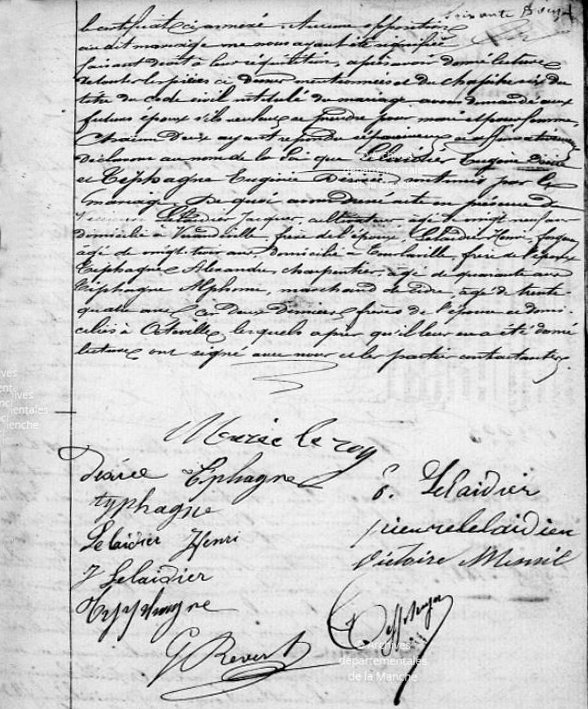 le certificat ci annexé. Aucune opposition
au dit mariage ne nous ayant été signifiée
faisant droit à leur réquisition, après avoir donné lecture
de toutes les pièces ci dessus mentionnées et du chapitre six du
titre du code civil intitulé du mariage avons demandé aux
futurs époux s'ils veulent se prendre pour mari et pour femme
Chacun d'eux ayant répondu séparément et affirmativement
déclarons au nom de la loi que Lelaidier Eugène
et Typhagne Eugénie Désirée sont unis par le
mariage. De quoi avons dressé acte en présence de
Lelaidier Jacques, cultivateur, âgé de vingt neuf ans
domicilié à frère de l'époux, Lelaidier Henri,
âgé de vingt trois ans, domicilié à Tourlaville, frère de l'époux
Typhagne Alexandre, charpentier, âgé de quarante ans
Typhagne Alphonse, marchand de cidre âgé de trente
quatre ans, ces deux derniers frères de l'épouse et domi-
ciliés à lesquels après qu'il leur en a été donné
lecture ont signé avec nous et les parties contractantes.
Marie leroy
Désirée Typhagne
typhagne
Lelaidier Henri
J Lelaidier
Typhagne
G Revert
E. Lelaidier
pierre lelaidier
Victoire Mesnil
Archives
départementales
de la Manche